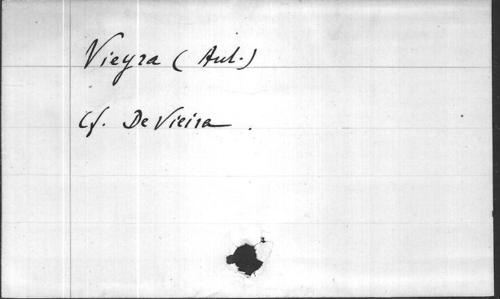 Vieyra (Ant.)
Cf. De Vieira.